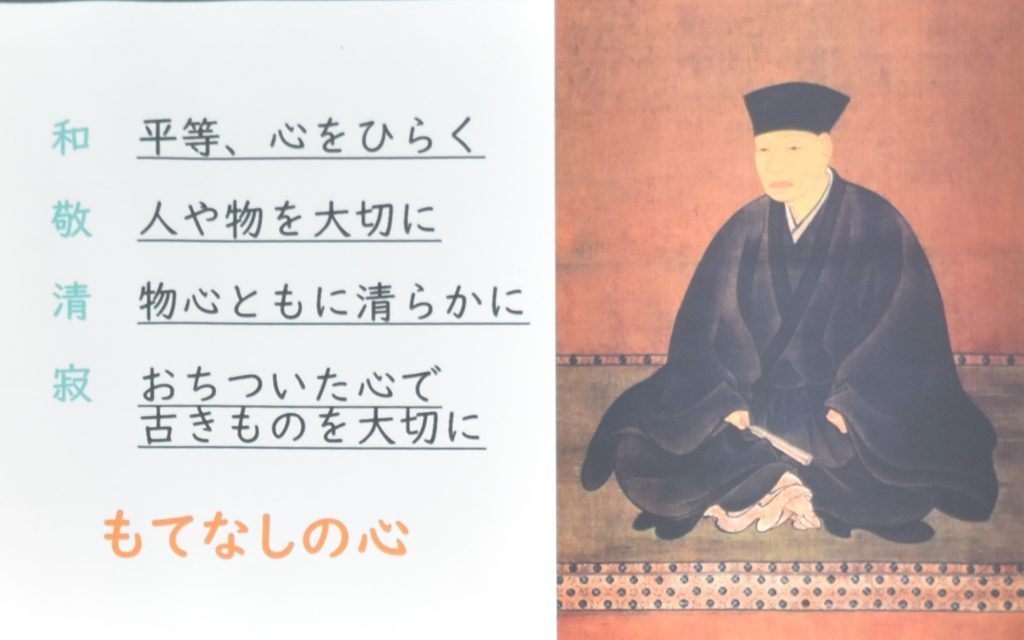 和 平等、心をひらく
敬 人や物を大切に
清 物心ともに清らかに
寂 おちついた心で
古きものを大切に
もてなしの心